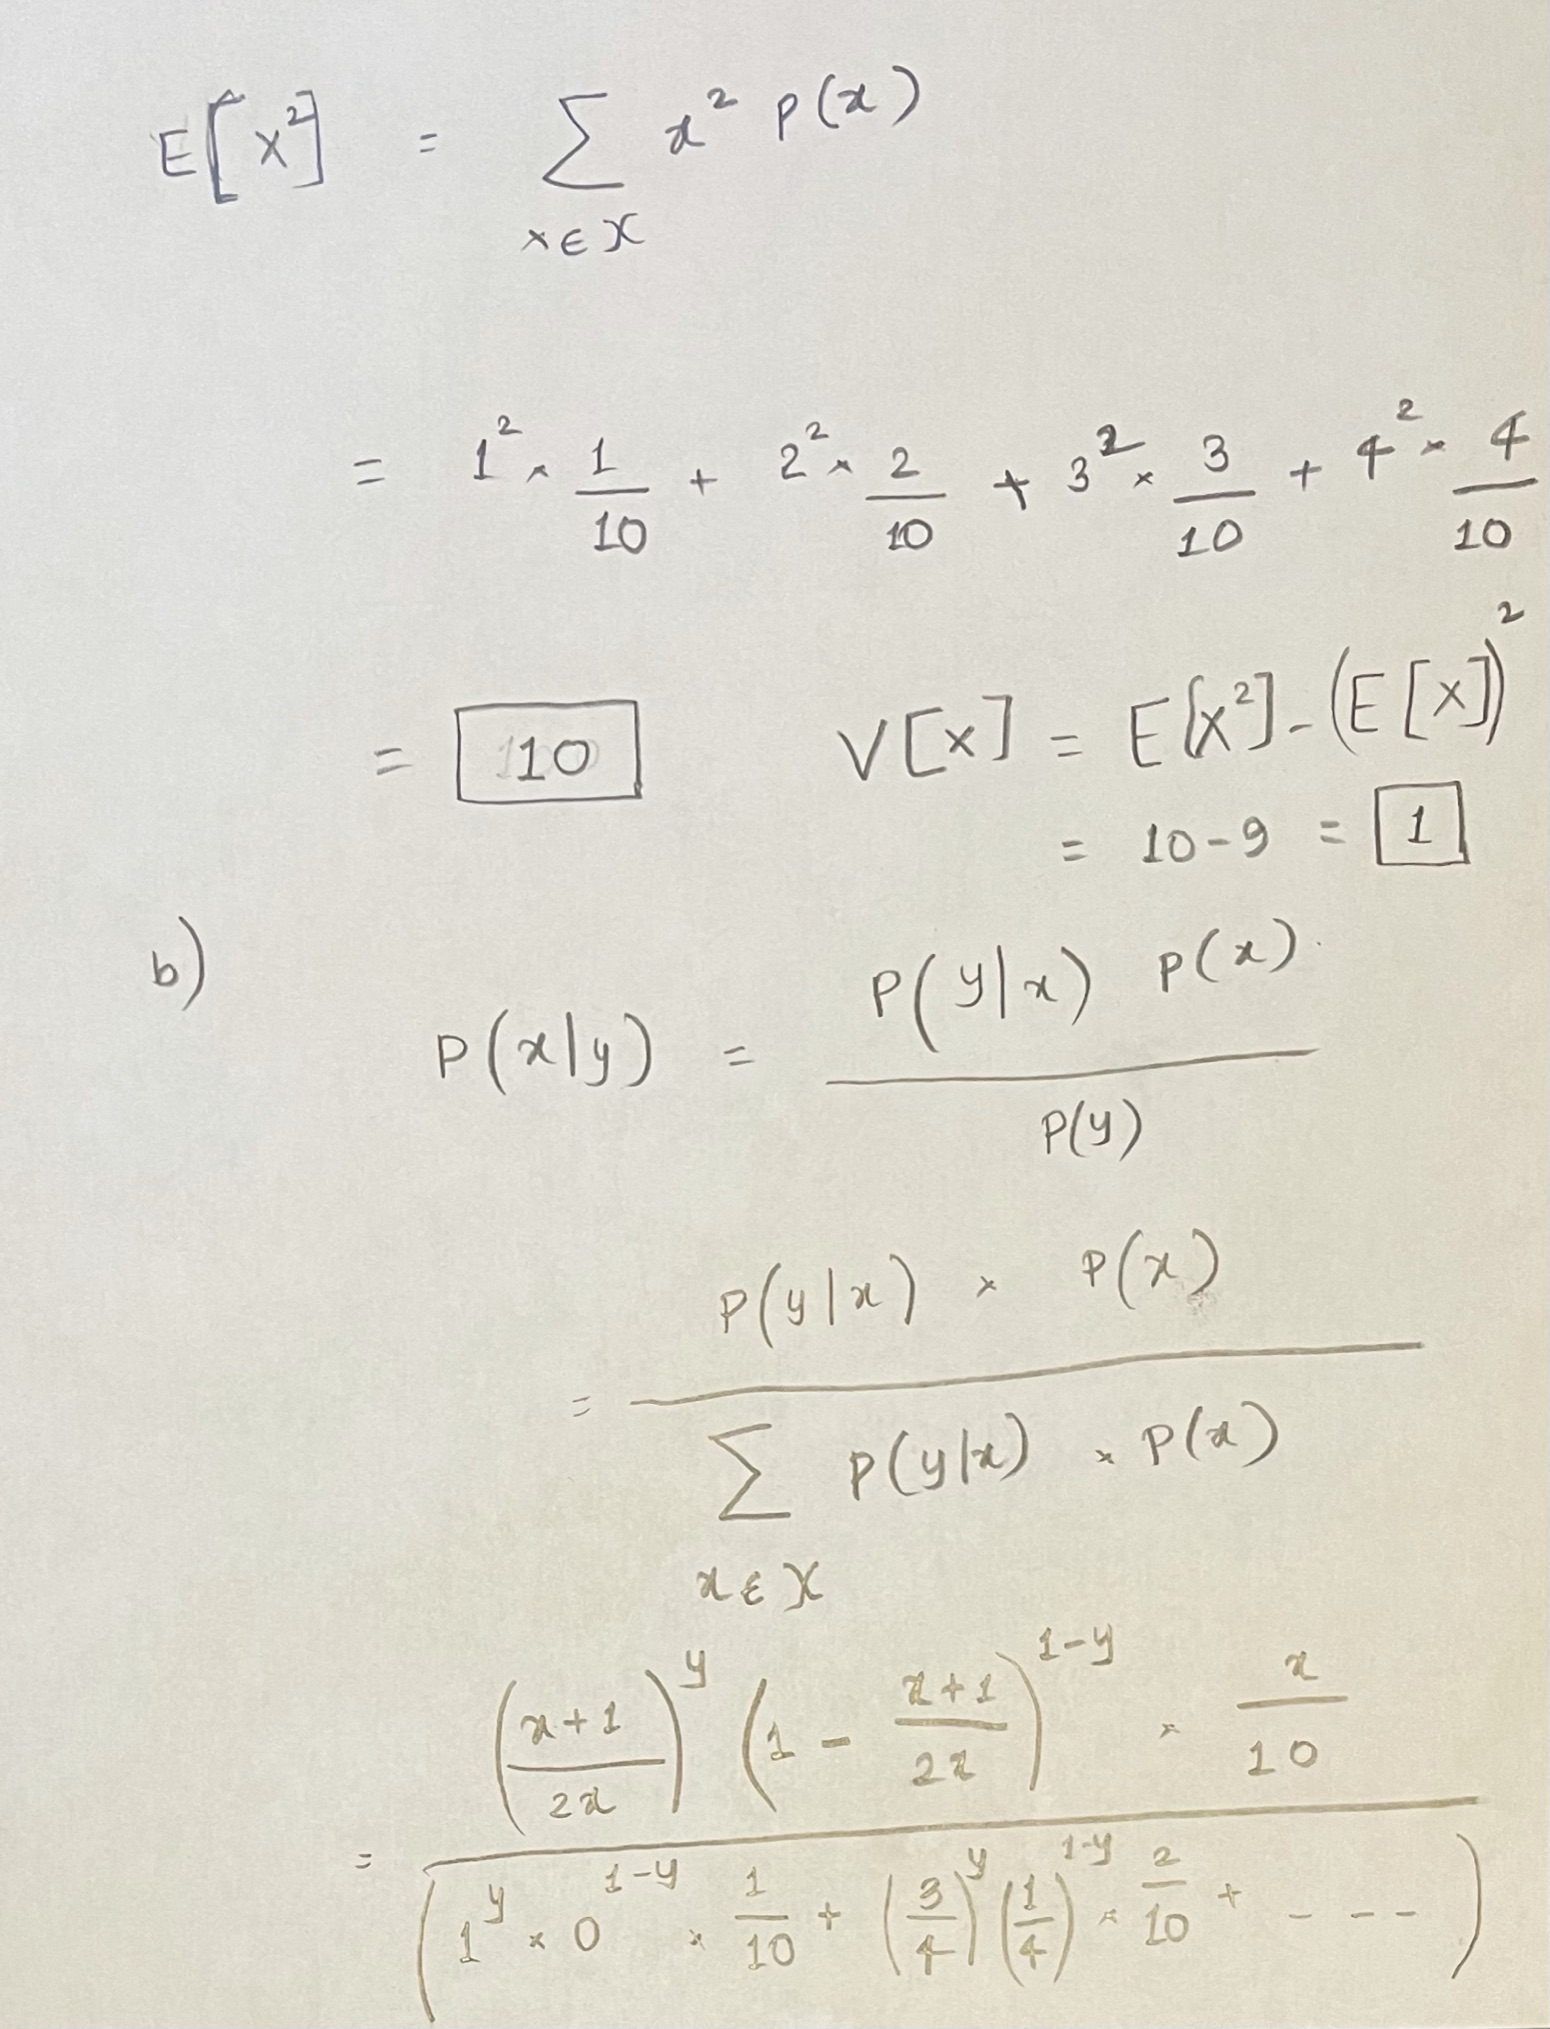 E[X²] = ∑ x² P(x)
x∈X
= 1² × 1/10 + 2² × 2/10 + 3² × 3/10 + 4² × 4/10
= 10 V[X] = E[X²] - (E[X])²
= 10-9 = 1
b)
P(x|y) = P(y|x) P(x) / P(y)
= P(y|x) × P(x) / ∑ P(y|x) × P(x)
x∈X
= ((x+1)/2x)^y (1 - (x+1)/2x)^(1-y) × x/10 / (1^y × 0^(1-y) × 1/10 + (3/4)^y (1/4)^(1-y) × 2/10 + ----)